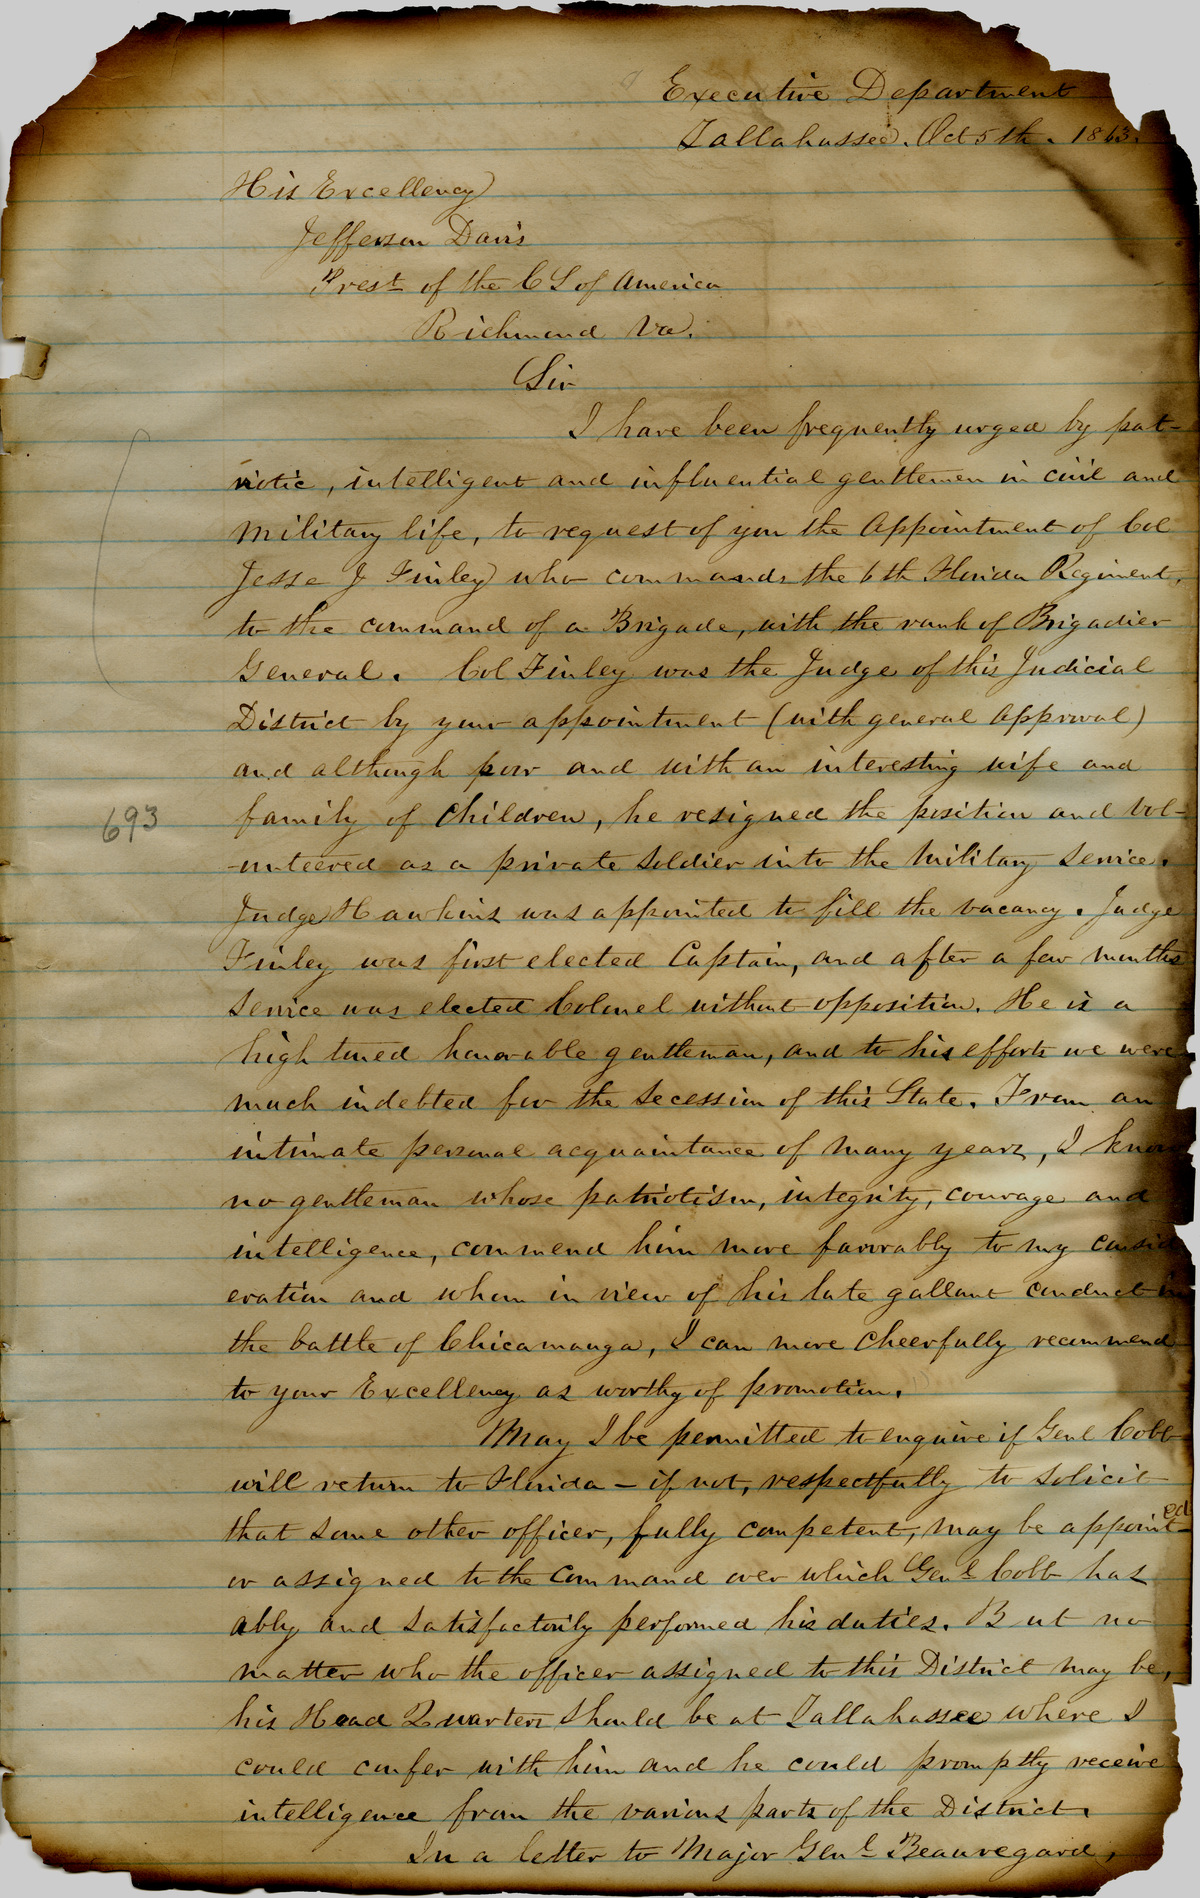 Executive Department
Tallahassee. Oct 5th. 1863.
His Excellency
Jefferson Davis
Prest of the C S of America
Richmond Va.
Sir
I have been frequently urged by pat-
riotic, intelligent and influential gentlemen in civil and
military life, to request of you the Appointment of Col
Jesse J Finley who commands the 6th Florida Regiment,
to the command of a Brigade, with the rank of Brigadier
General. Col Finley was the Judge of this Judicial
District by your appointment (with general approval)
and although poor and with an interesting wife and
family of children, he resigned the position and vol-
-unteered as a private soldier into the military service.
693
Judge Hawkins was appointed to fill the vacancy. Judge
Finley was first elected Captain, and after a few months
service was elected Colonel without opposition. He is a
high toned honorable gentleman, and to his efforts we were
much indebted for the secession of this State. From an
intimate personal acquaintance of many years, I know
no gentleman whose patriotism, integrity, courage and
intelligence, commend him more favorably to my consid
eration and whom in view of his late gallant conduct in
the battle of Chicamauga, I can more cheerfully recommend
to your Excellency as worthy of promotion.
May I be permitted to enquire if Genl Cobb
will return to Florida - if not, respectfully to solicit
that some other officer, fully competent, may be appointed
or assigned to the command over which Genl Cobb has
ably and satisfactorily performed his duties. But no
matter who the officer assigned to this District may be,
his Head Quarters should be at Tallahassee where I
could confer with him and he could promptly receive
intelligence from the various parts of the District.
In a letter to Major Genl Beauregard,